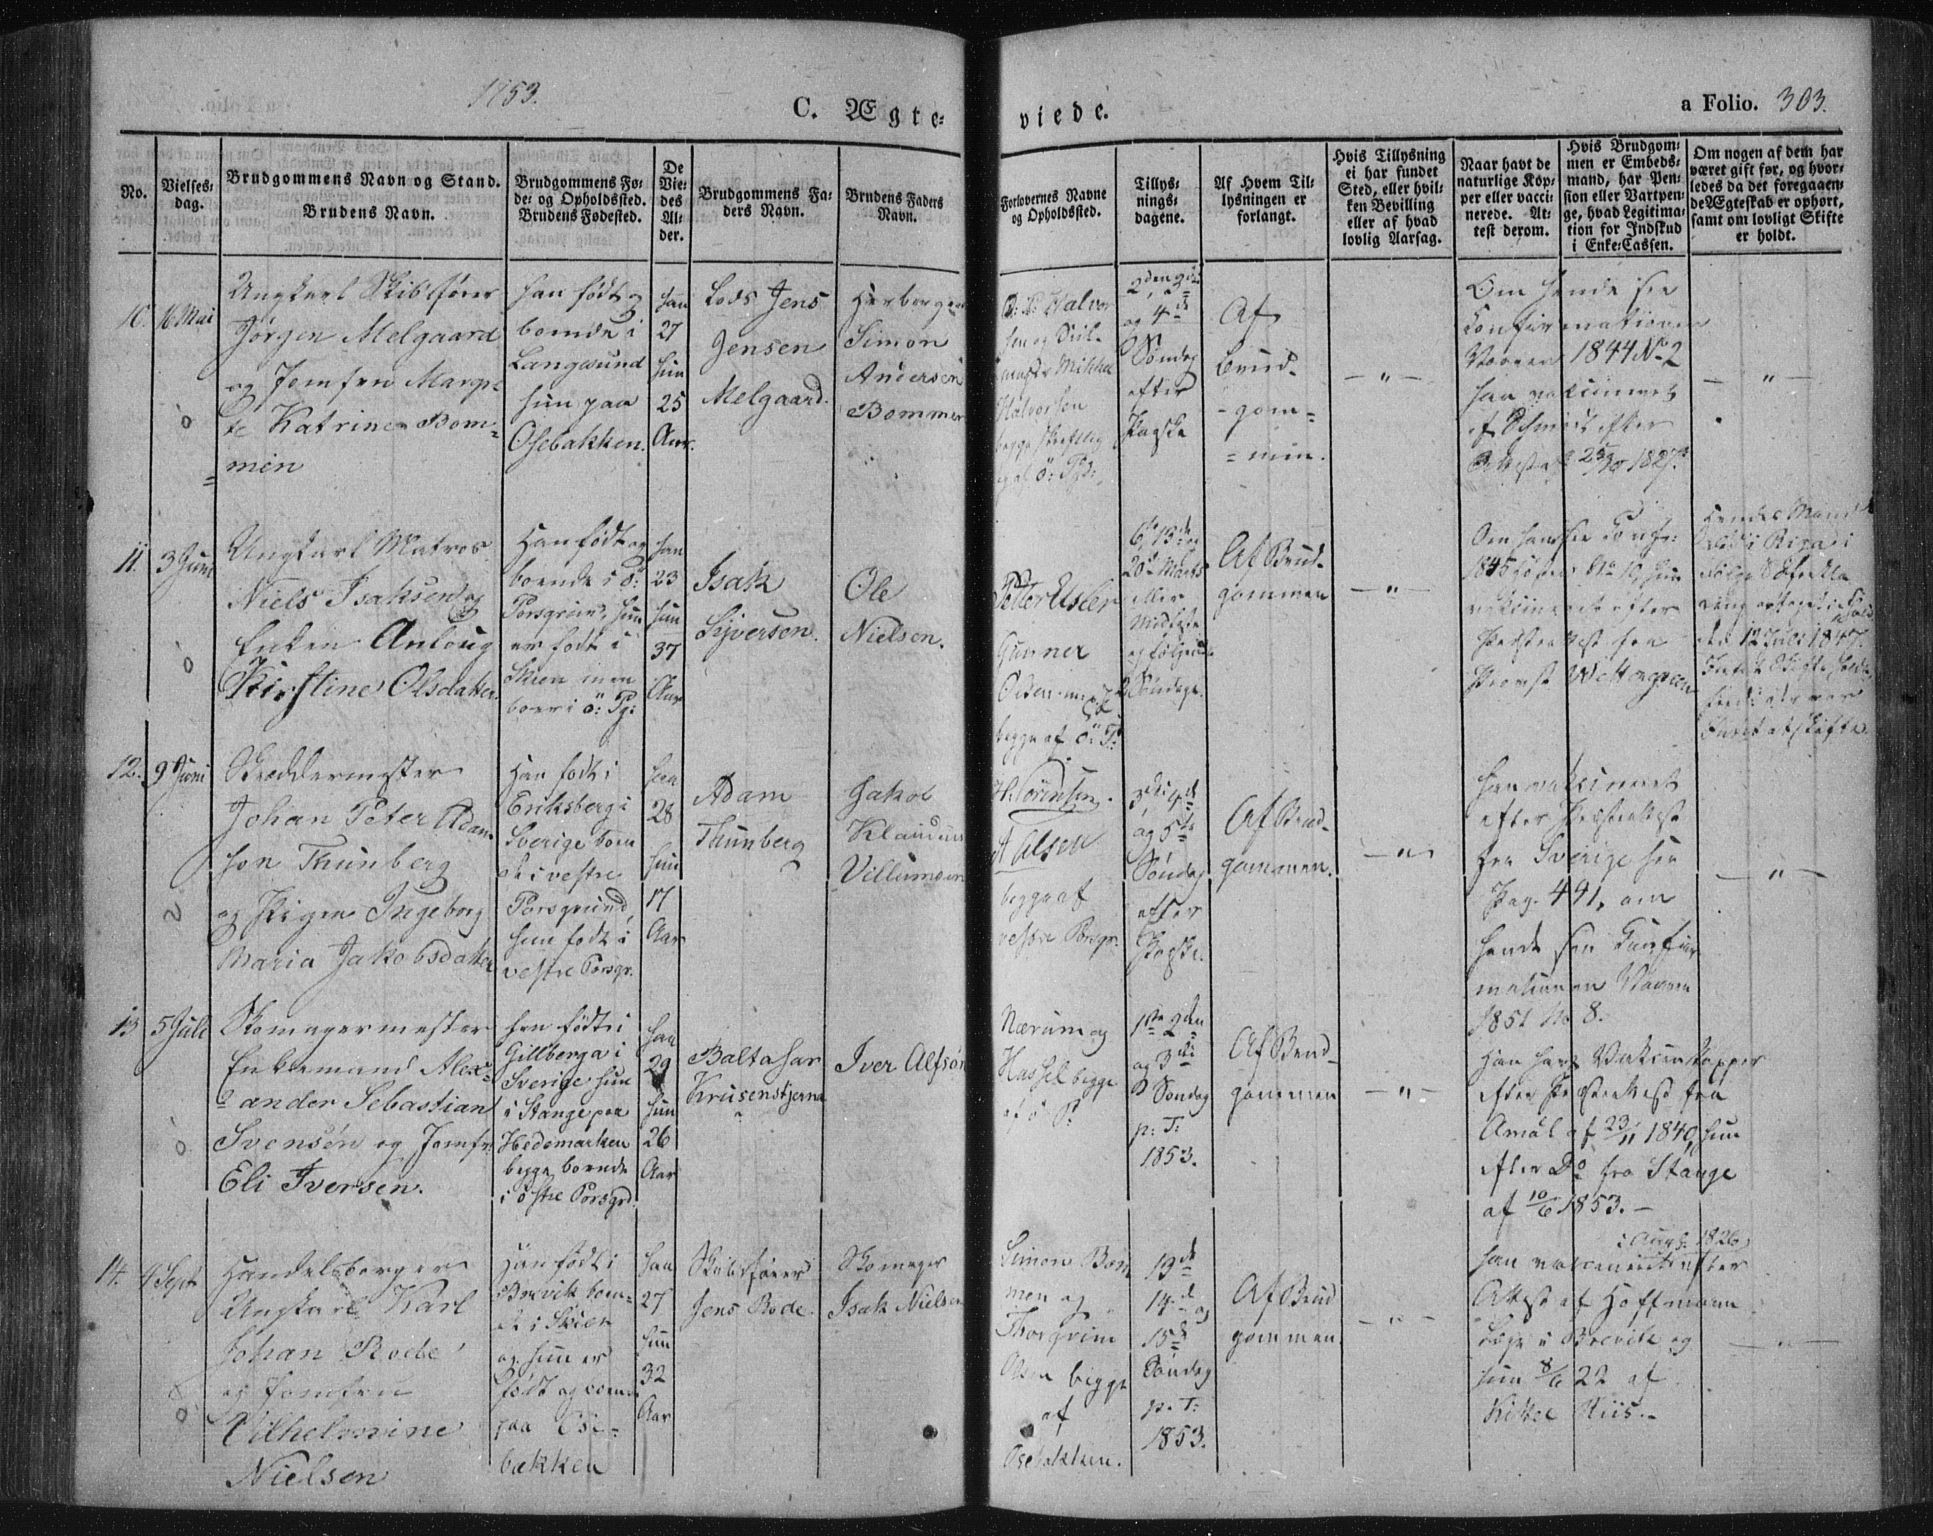 1853.
C. Ægte-
viede.
a Folio. 303.
No.
Vielses-
dag.
Brudgommens Navn og Stand.
Brudens Navn.
Brudgommens Fø-
de- og Opholdssted.
Brudens Fødested.
De
Vie-
des
Al-
der.
Brudgommens Fa-
ders Navn.
Brudens Faders
Navn.
Forlovernes Navne
og Opholdssted.
Tillys-
nings-
dagene.
Af Hvem Til-
lysningen er
forlangt.
Hvis Tillysning
ei har fundet
Sted, eller hvil-
ken Bevilling
eller af hvad
lovlig Aarsag.
Naar havt de
naturlige Kop-
per eller vacci-
nerede. At-
test derom.
Hvis Brudgom-
men er Embeds-
mand, har Pen-
sion eller Vartpen-
ge, hvad Legitima-
tion for Indskud
i Enke-Cassen.
Om nogen af dem har
været gift før, og hvor-
ledes da det foregaaen-
de Ægteskab er ophørt,
samt om lovligt Skifte
er holdt.
10. 16 Mai
Ungkarl Skibsfører
Jørgen Melgaard
og Jomfru Margre-
te Katrine Bom-
men
han født og
boende i
Langesund
hun paa
Osebakken.
han
27
hun
25
Aar.
Lods Jens
Jensen
Melgaard.
Simon
Andersen
Bommen
Halvor
sen og
Mikkel
Halvorsen
begge
2den, 3die
og 4de
Søndag
efter
Paaske
Af
Brud-
gom-
men.
— " —
Om hende see
Confirmationen
Vaaren 1844 No 2
han vakcineret
af Schmidt efter
Attest af
— " —
11. 3 Juni
Ungkarl Matros
Niels Isaksen og
Enken Antoug
Kirstine Olsdatter.
Han født og
boende i ö:
Porsgrund, hun
er født i
Skien men
boer i ö: Pg:
han
23
hun
37
Aar
Isak
Sijversen.
Ole
Nielsen.
Petter Usler
Gunner
begge af ö: P:
6te, 13de og
20de Marts
eller
Midfaste
og følgende
2 Søndage.
Af Brud-
gommen
— " —
Om ham see Confir:
1845 No 19, hun
vakcineret efter
Præsteattest fra
Provst Wettergreen
Hendes Mand
død i Riga i
følge Skifteretten
den 12 Juli 1847.
Intet at skifte.
12. 9 Juni
Skreddermester
Johan Peter Adam-
son Thunberg
og Pigen Ingeborg
Maria Jakobsdatter
Han født i
Eriksberg i
Sverige boen
de i vestre
Porsgrund,
hun født i
vestre Porsgr.
han
28
hun
17
Aar
Adam
Thunberg
Jakob
Klaudius
Villumsen
H. Sörensen.
Alsen
begge af
vestre Porsgr.
3die, 4de
og 5te
Søndag
efter
Paaske.
Af Brud-
gommen.
— " —
han vakcineret
efter Præsteattest
fra Sverige see
Pag. 491, om
hende see Confir
mationen Vaaren
1851 No 8.
— " —
13 5 Juli
Skomagermester
Enkemand Alex-
ander Sebastian
Svensén og Jomfr
Eli Iversen.
han født i
Gillberga i
Sverige hun
i Stange paa
Hedemarken
begge boende
i østre Porsgrd.
han
29
hun
26
Aar
Baltasar
Krusenstjerna
Iver Alfsön
Nærum og
Hassel begge
af ö: P:
1ste 2den
og 3die
Søndag
p: T:
1853.
Af Brud-
gommen
— " —
Han havt Vakcinekopper
efter Præsteattest fra
Amål af 23/11 1840, hun
efter Do fra Stange
af 10/6 1853. —
14. 4 Sept
Handelsborger
Ungkarl Karl
Johan Rode
og Jomfru
Vilhelmine
Nielsen
Han født i
Brevik boen-
de i Skien
og hun er
født og boende
paa Ose-
bakken
han
27
hun
32
Aar
Skibsfører
Jens Rode.
Skomager
Isak Nielsen
Simon Bom
men og
Thorgrim
Olsen begge
af
Osebakken.
13de
14de og
15de
Søndag
p. T:
1853.
Af Brud
gommen
— " —
i Aug: 1826,
han vaccineret efter
Attest af Hoffmann
Læge i Brevik og
hun 8/6 22 af
Kittel Riis. —
— " —